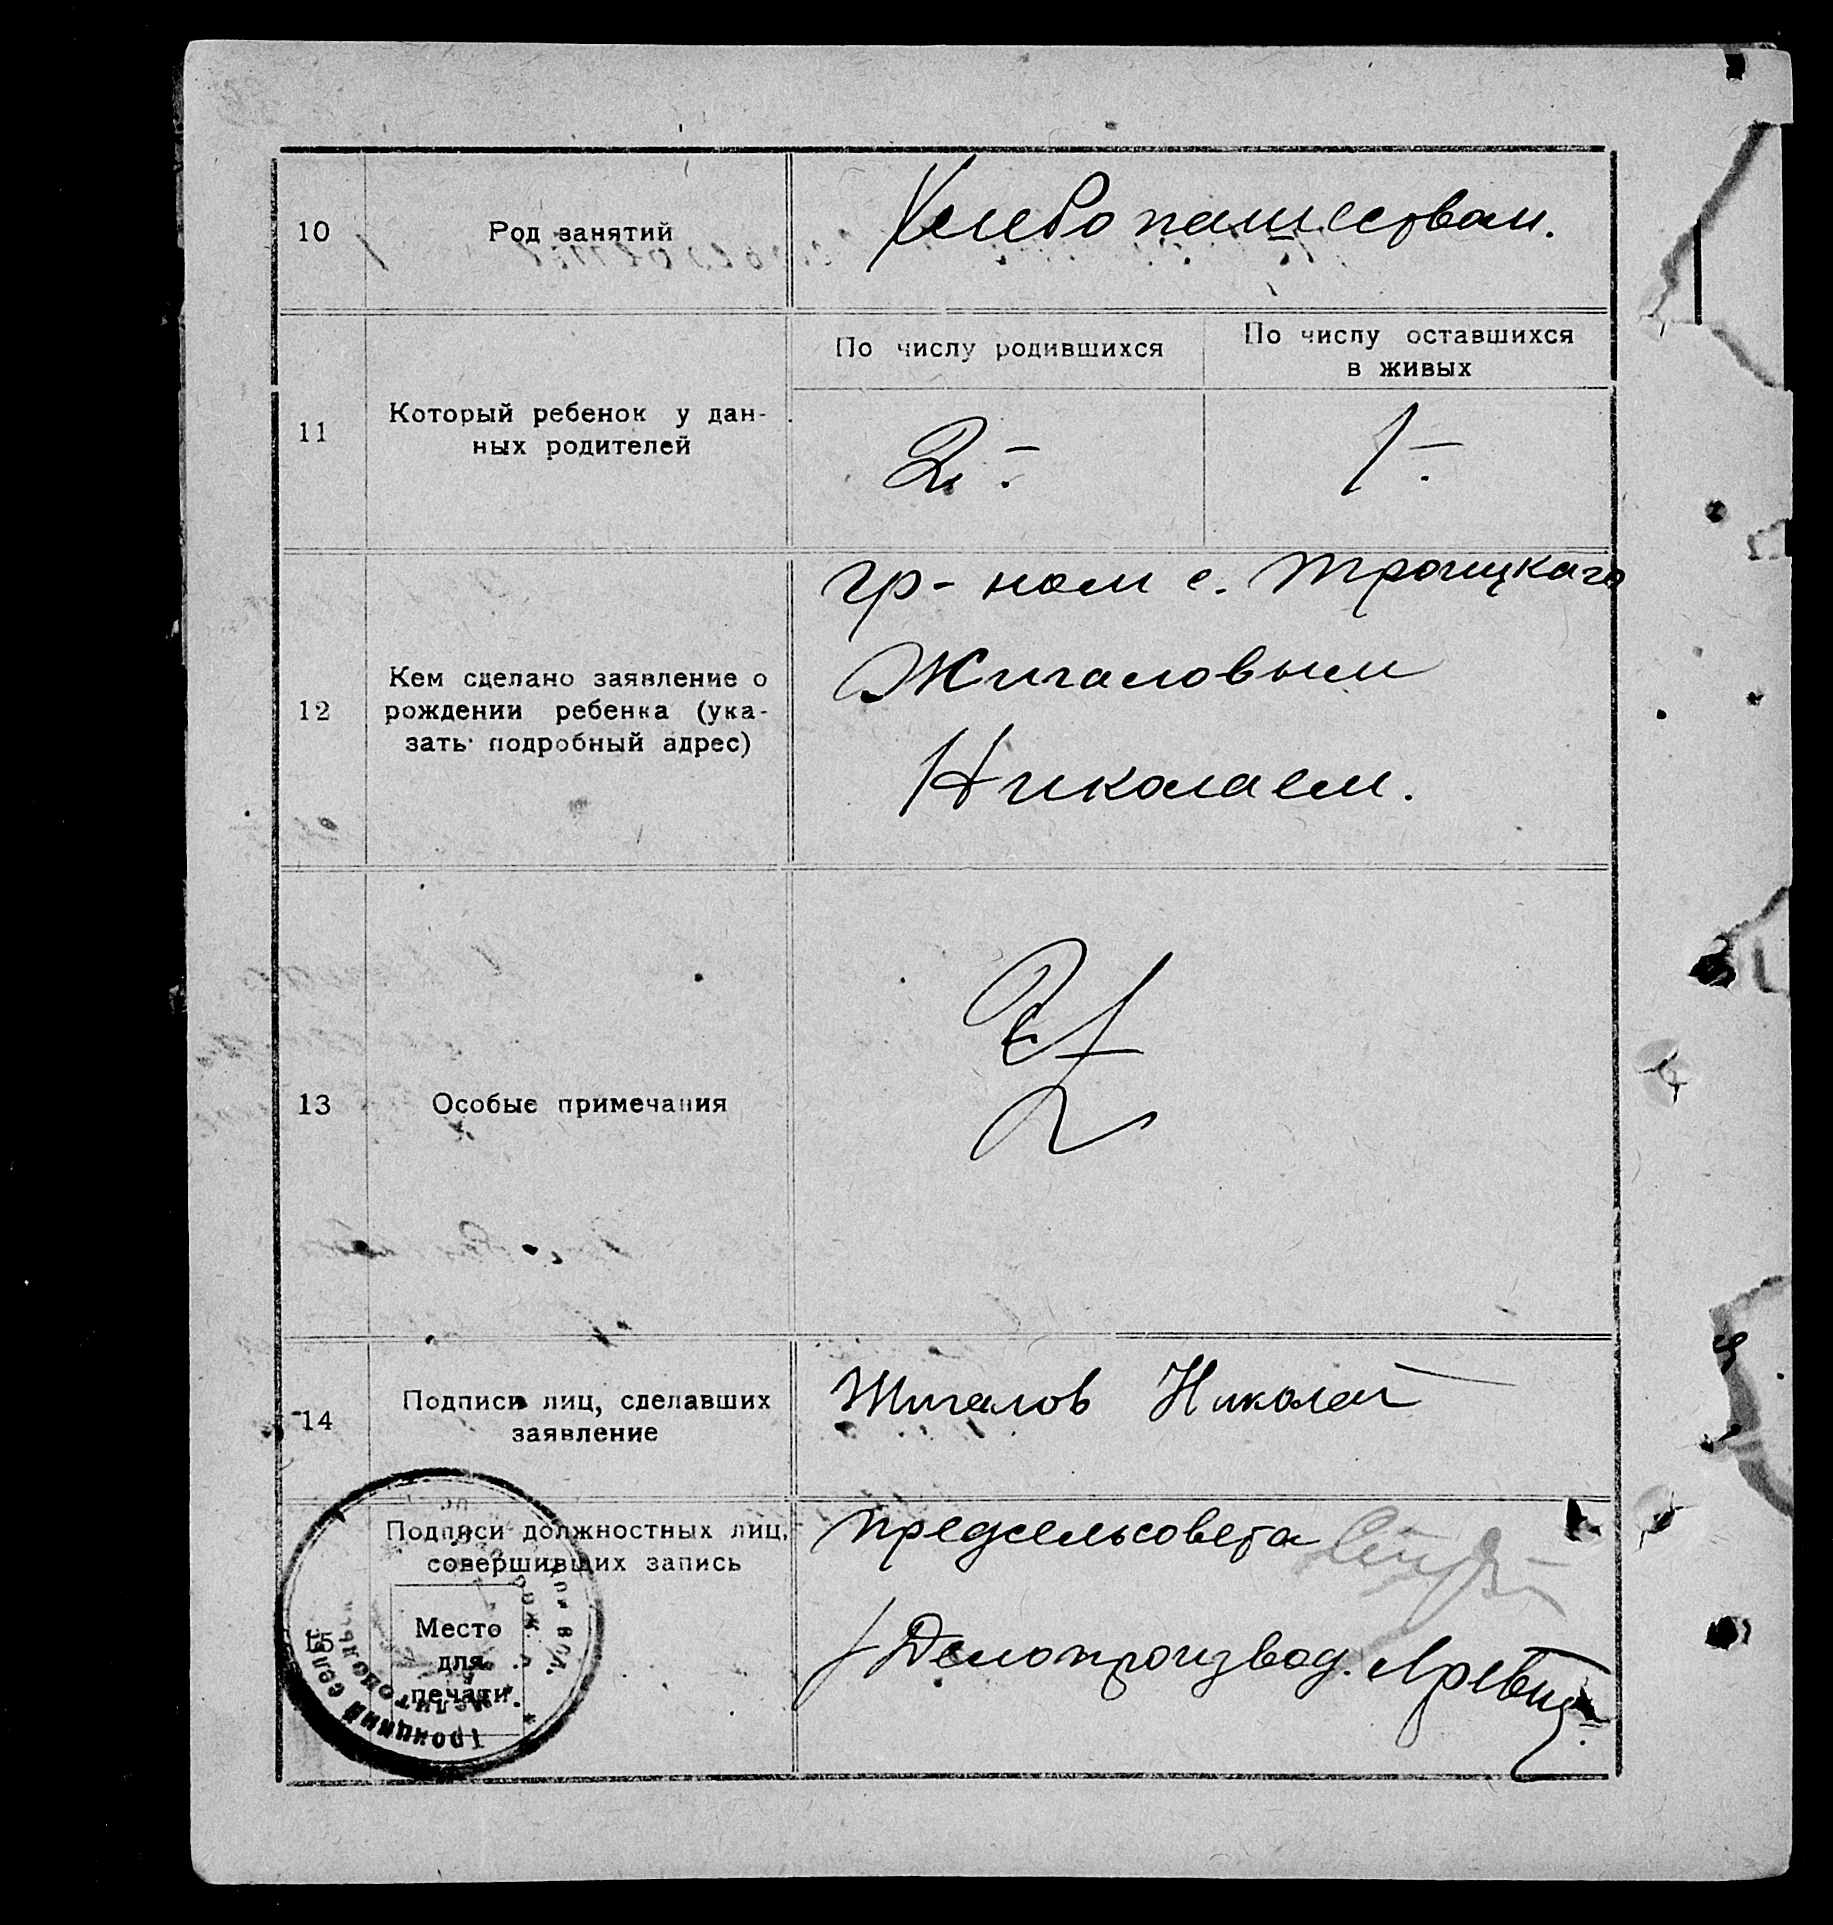 10
Род занятий
Хлебопашеством.
11
Который ребенок у дан-
ных родителей
По числу родившихся
По числу оставшихся
в живых
2.-
1.-
12
Кем сделано заявление о
рождении ребенка (ука-
зать подробный адрес)
гр-ном с. Троицкаго
Жигаловым
Николаем.
13
Особые примечания
14
Подписи лиц, сделавших
заявление
Жигалов Николай
15
Подписи должностных лиц,
совершивших запись
Место
для
печати
предсельсовета
Делопроизвод.